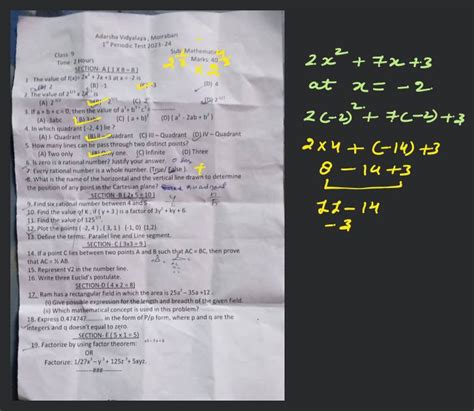 Adarsha Vidyalaya, Moiraban
1st Periodic Test 2023-24
Class: 9
Sub: Mathematics
Time: 2 Hours
Marks: 40
SECTION- A ( 1 X 8 = 8 )
1 The value of f(x)= 2x² + 7x +3 at x = -2 is
(A) 2 (B) -1 (D) 4
2 The value of
(C) 2
3 If a + b + c = 0, then the value of a³ + b³+ c³
(A) -3abc (C) ( a + b)² (D) ( a² - 2ab + b² )
4. In which quadrant ( -2, 4 ) lie ?
(A) I- Quadrant (B) II-Quadrant (C) III – Quadrant (D) IV – Quadrant
5. How many lines can be pass through two distinct points?
(A) Two only one. (C) Infinite (D) Three
6. Is zero is a rational number? Justify your answer.
7. Every rational number is a whole number. (True/ False).
8. What is the name of horizontal and the vertical line drawn to determine
the position of any point in the Cartesian plane?
SECTION - B ( 2x 5 = 10 )
9. Find six rational number between 4 and 5
10. Find the value of K, if ( y + 3 ) is a factor of 3y² + ky + 6.
11. Find the value of 125
12. Plot the points ( -2, 4 ) , ( 3, 1 ) (-1, 0) (1,2).
13. Define the terms: Parallel line and Line segment.
SECTION - C ( 3x3 = 9 )
14. If a point C lies between two points A and B such that AC = BC, then prove
that AC = ½ AB.
15. Represent √2 in the number line.
16. Write three Euclid's postulate.
SECTION-D ( 4 x 2 = 8)
17. Ram has a rectangular field in which the area is 25a² – 35a +12 .
(i) Give possible expression for the length and breadth of the given field.
(ii) Which mathematical concept is used in this problem?
18. Express 0.474747......... in the form of P/p form, where p and q are the
integers and q doesn't equal to zero.
SECTION- E ( 5 x 1 = 5)
19. Factorize by using factor theorem:
OR
Factorize: 1/27x³ – y³ + 125z³ + 5xyz.
###
2x² + 7x + 3
at x = -2
2(-2)² + 7(-2) + 3
2 × 4 + (-14) + 3
8 - 14 + 3
11 - 14
-3